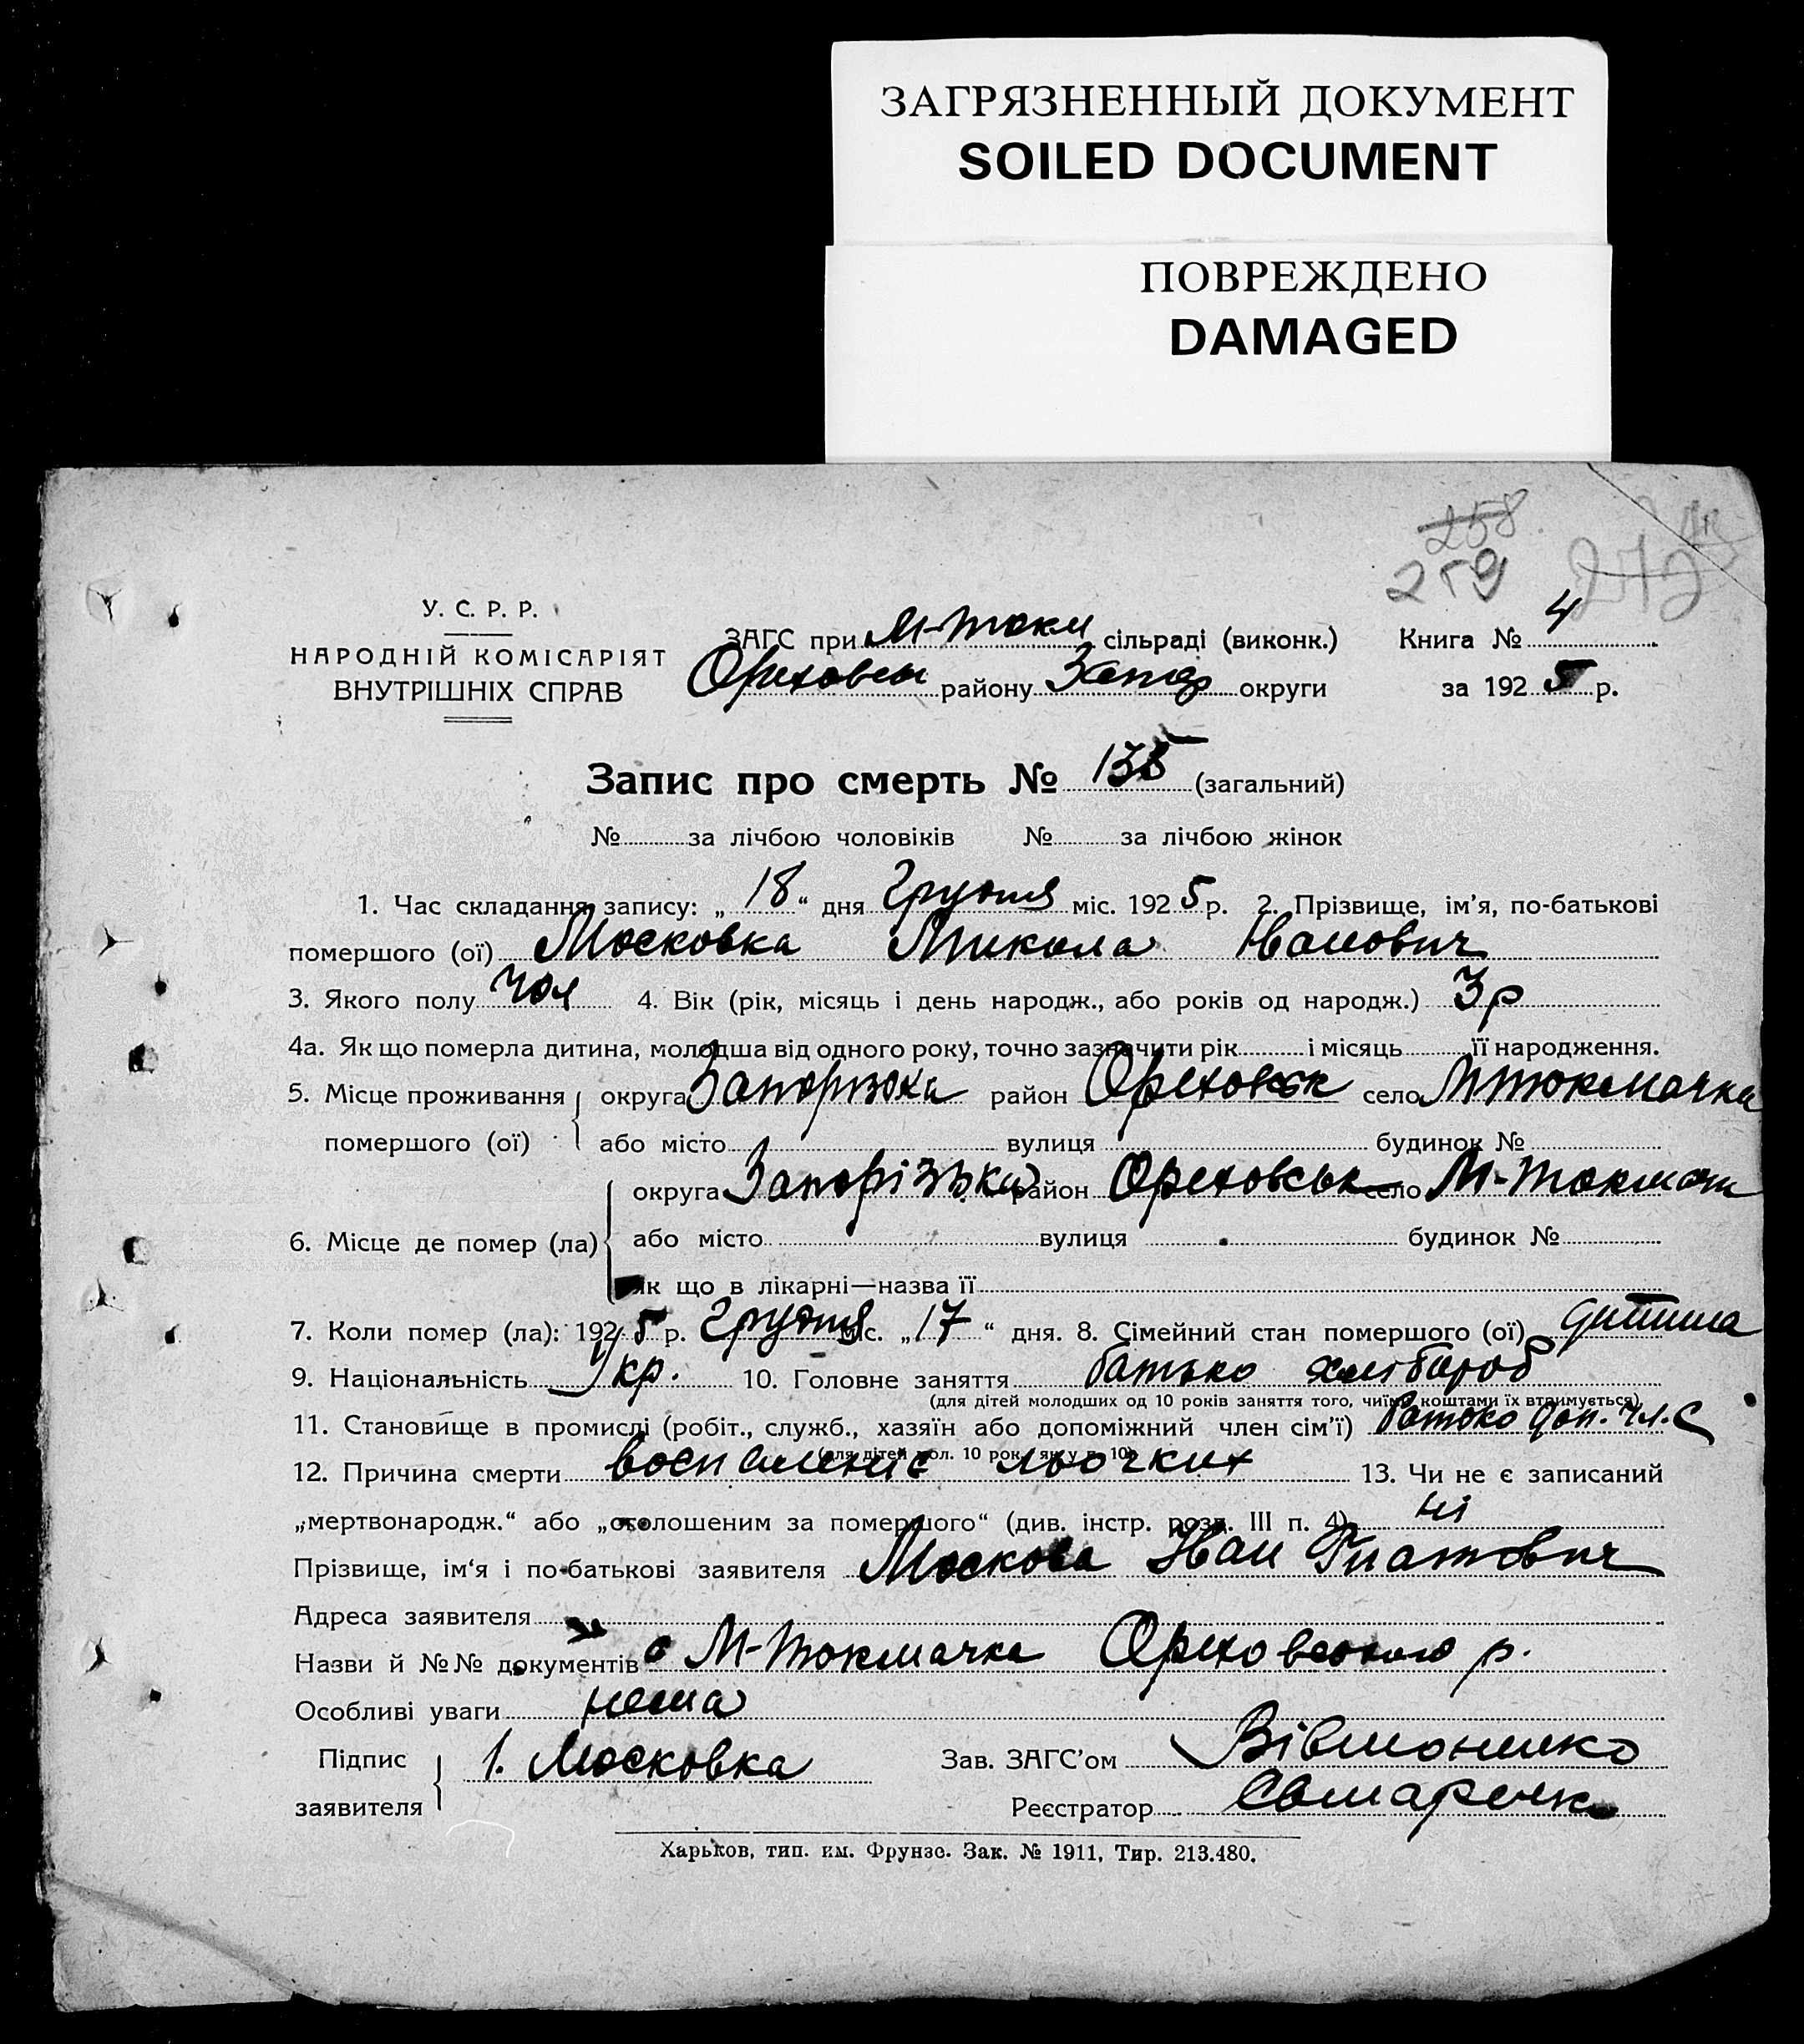 ЗАГРЯЗНЕННЫЙ ДОКУМЕНТ
SOILED DOCUMENT
ПОВРЕЖДЕНО
DAMAGED
258
259 272
У. С. Р. Р.
НАРОДНІЙ КОМІСАРІЯТ
ВНУТРІШНІХ СПРАВ
ЗАГС при М-Токм сільраді (виконк.) Книга № 4
Ореховськ району Запор округи за 1925 р.
Запис про смерть № 135 (загальний)
№ за лічбою чоловіків № за лічбою жінок
1. Час складання запису: „18“ дня Грудня міс. 1925 р. 2. Прізвище, ім’я, по-батькові
помершого (ої) Московка Микола Иванович
3. Якого полу чол 4. Вік (рік, місяць і день народж., або років од народж.) 3 р
4а. Як що померла дитина, молодша від одного року, точно зазначити рік і місяць її народження.
5. Місце проживання округа Запорізка район Ореховськ село М Токмачка
помершого (ої) або місто вулиця будинок №
округа Запорізька район Ореховськ село М-Токмачк
6. Місце де помер (ла) або місто вулиця будинок №
як що в лікарні—назва її
7. Коли помер (ла): 1925 р. Грудня міс. „17“ дня. 8. Сімейний стан помершого (ої) дитина
9. Національність Укр. 10. Головне заняття батько хлібороб
(для дітей молодших од 10 років заняття того, чиїми коштами їх втримується)
11. Становище в промислі (робіт., служб., хазяїн або допоміжний член сім’ї) Батько доп. чл. С
(для дітей мол. 10 рок. як у п. 10)
12. Причина смерти воспаление льочких 13. Чи не є записаний
„мертвонародж.“ або „оголошеним за помершого“ (див. інстр. розд. III п. 4) ні
Прізвище, ім‘я і по-батькові заявителя Москова Иван Гнатович
Адреса заявителя
Назви й №№ документів с М-Токмачка Ореховского р.
Особливі уваги нема
Підпис заявителя 1. Московка Зав. ЗАГС’ом
Реєстратор
Харьков, тип. им. Фрунзе. Зак. № 1911, Тир. 213.480.